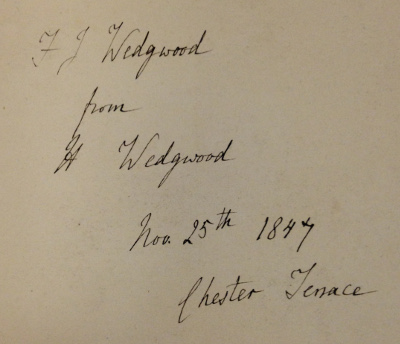 F J Wedgwood
from
H Wedgwood
Nov. 25th 1847
Chester Terrace